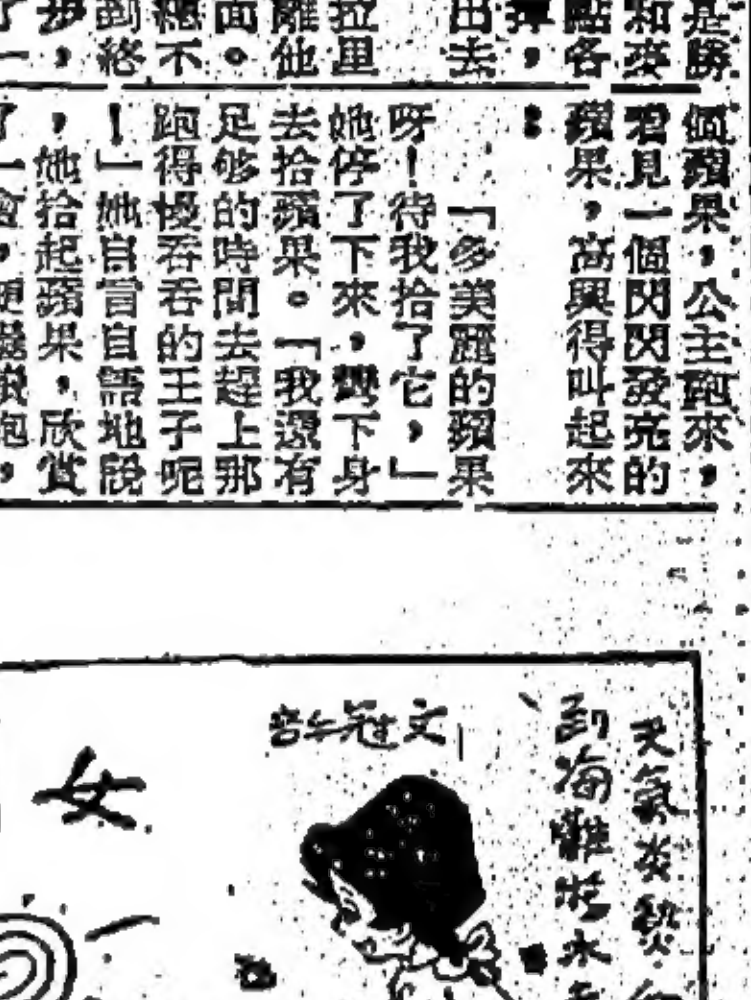 是勝
和麥
點各
揮，
出去
拉里
離他
面。
總不
到終
步，
了一
個蘋果，公主跑來，
看見一個閃閃發亮的
蘋果，高興得叫起來
：
「多美麗的蘋果
呀！待我拾了它，」
她停了下來，彎下身
去拾蘋果。「我還有
足够的時間去趕上那
跑得慢吞吞的王子呢
！」她自言自語地說
，她拾起蘋果，欣賞
了一會，
天氣炎熱
到海灘游水
文冠
女